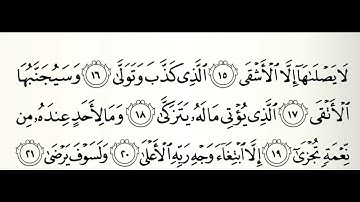 لَا يَصْلَىٰهَآ إِلَّا ٱلْأَشْقَى ١٥ ٱلَّذِى كَذَّبَ وَتَوَلَّىٰ ١٦ وَسَيُجَنَّبُهَا
ٱلْأَتْقَى ١٧ ٱلَّذِى يُؤْتِى مَالَهُۥ يَتَزَكَّىٰ ١٨ وَمَا لِأَحَدٍ عِندَهُۥ مِن
نِّعْمَةٍ تُجْزَىٰٓ ١٩ إِلَّا ٱبْتِغَآءَ وَجْهِ رَبِّهِ ٱلْأَعْلَىٰ ٢٠ وَلَسَوْفَ يَرْضَىٰ ٢١